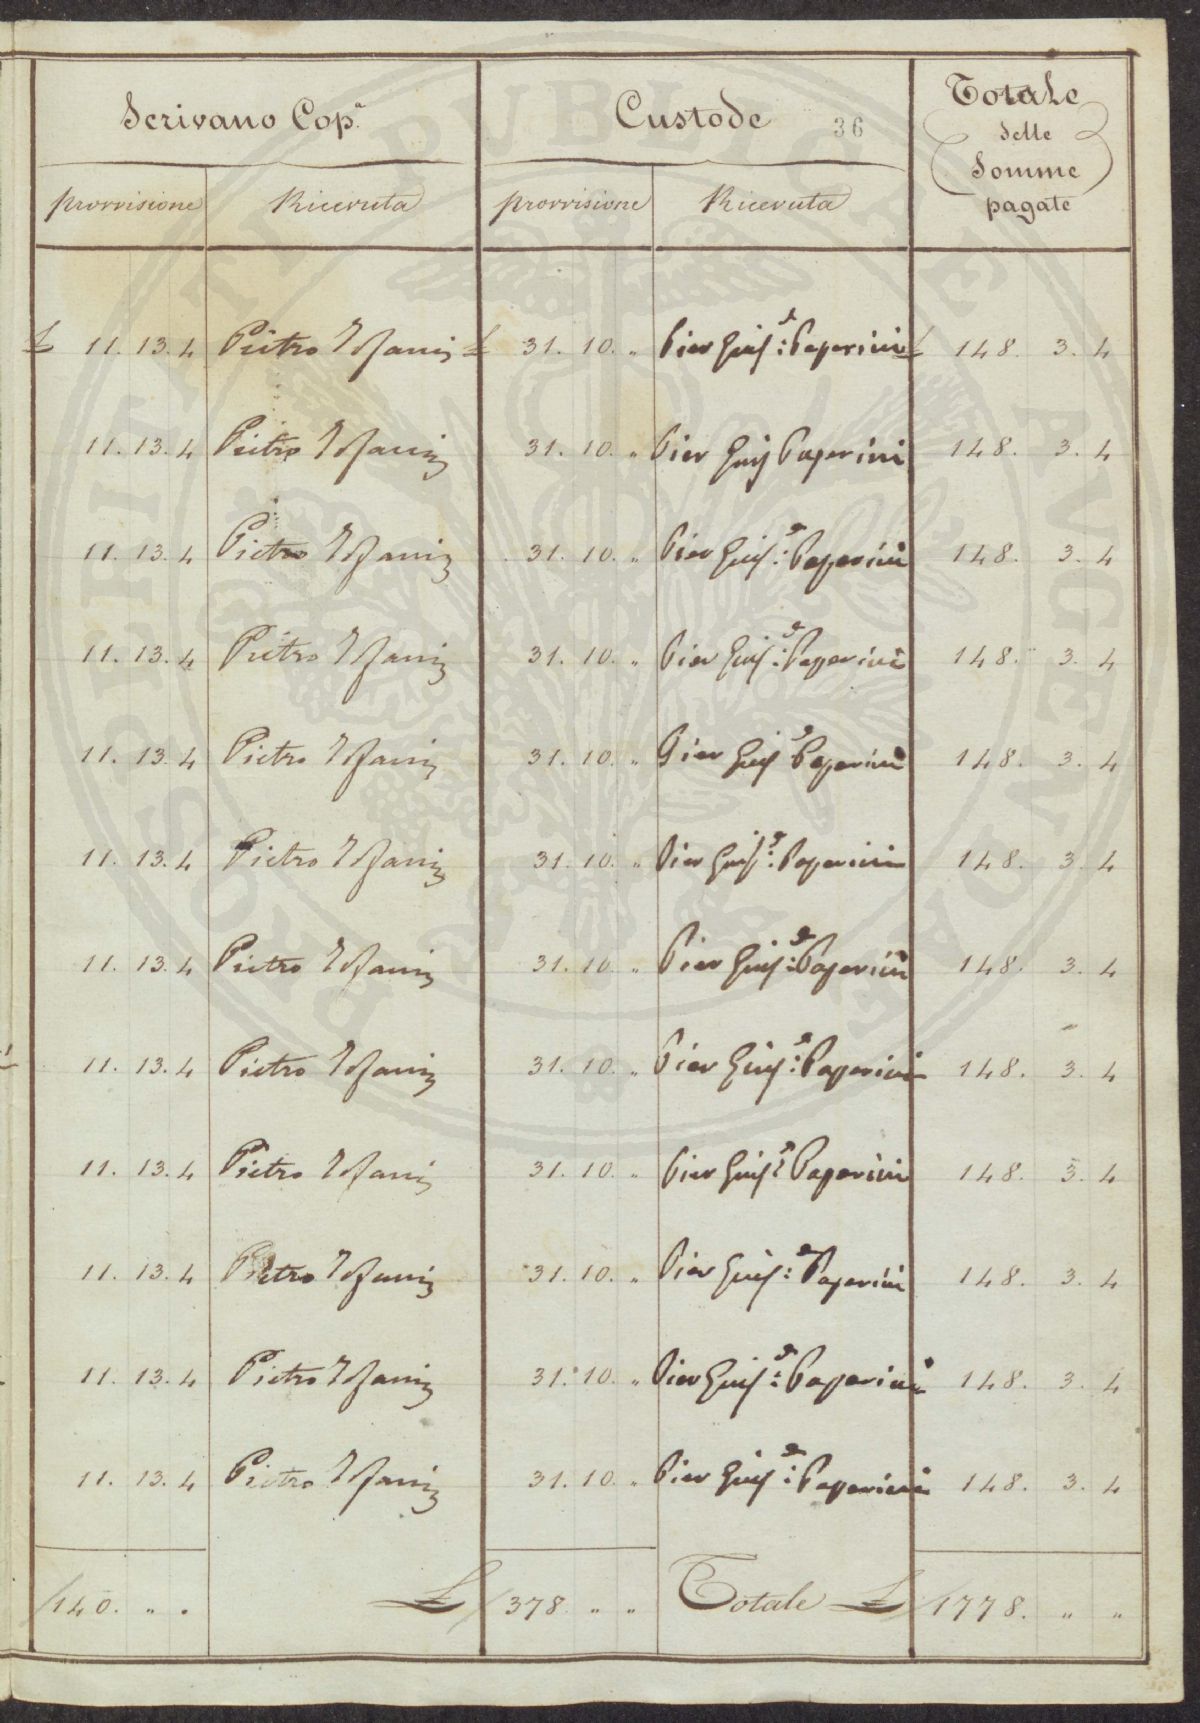 Scrivano Cop.ᵃ Custode 36 Totale
delle
Somme
pagate
provvisione Ricevuta provvisione Ricevuta
£ 11. 13. 4 Pietro £ 31. 10. „ Pier Gius:ᵉ Paperini £ 148. 3. 4
11. 13. 4 Pietro 31. 10. „ Pier Gius Paperini 148. 3. 4
11. 13. 4 Pietro 31. 10. „ Pier Gius:ᵉ Paperini 148. 3. 4
11. 13. 4 Pietro 31. 10. „ Pier Gius:ᵉ Paperini 148. 3. 4
11. 13. 4 Pietro 31. 10. „ Pier Giusᵉ Paperini 148. 3. 4
11. 13. 4 Pietro 31. 10. „ Pier Gius:ᵉ Paperini 148. 3. 4
11. 13. 4 Pietro 31. 10. „ Pier Gius:ᵉ Paperini 148. 3. 4
11. 13. 4 Pietro 31. 10. „ Pier Gius:ᵉ Paperini 148. 3. 4
11. 13. 4 Pietro 31. 10. „ Pier Gius:ᵉ Paperini 148. 3. 4
11. 13. 4 Pietro 31. 10. „ Pier Gius:ᵉ Paperini 148. 3. 4
11. 13. 4 Pietro 31. 10. „ Pier Gius:ᵉ Paperini 148. 3. 4
11. 13. 4 Pietro 31. 10. „ Pier Gius:ᵉ Paperini 148. 3. 4
140. „ . £ 378 „ „ Totale £ 1778. „ „